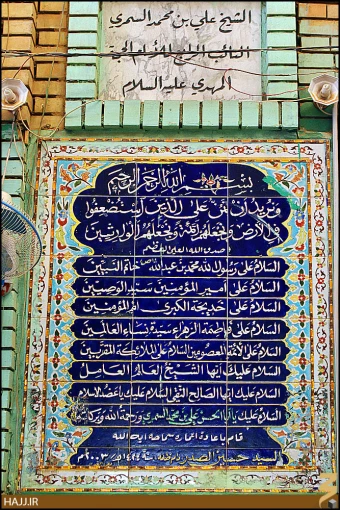 الشيخ علي بن محمد السمري
النائب الرابع للإمام الحجة
المهدي عليه السلام
بسم الله الرحمن الرحيم
ونريد ان نمن على الذين استضعفوا
في الارض ونجعلهم أئمة ونجعلهم الوارثين
صدق الله العلي العظيم
السلام على رسول الله محمد بن عبدالله خاتم النبيين
السلام على أمير المؤمنين سيد الوصيين
السلام على خديجة الكبرى ام المؤمنين
السلام على فاطمة الزهراء سيدة نساء العالمين
السلام على الأئمة المعصومين السلام على الملائكة المقربين
السلام عليك أيها الشيخ العالم العامل
السلام عليك ايها الصالح التقي السلام عليك يا عضد الاسلام
السلام عليك يا أبا الحسن علي بن محمد السمري ورحمة الله وبركاته
قام باعادة اعماره سماحة اية الله
السيد حسين الصدر دام ظله سنة ١٤٢٤هـ ٢٠٠٣م
HAJJ.IR